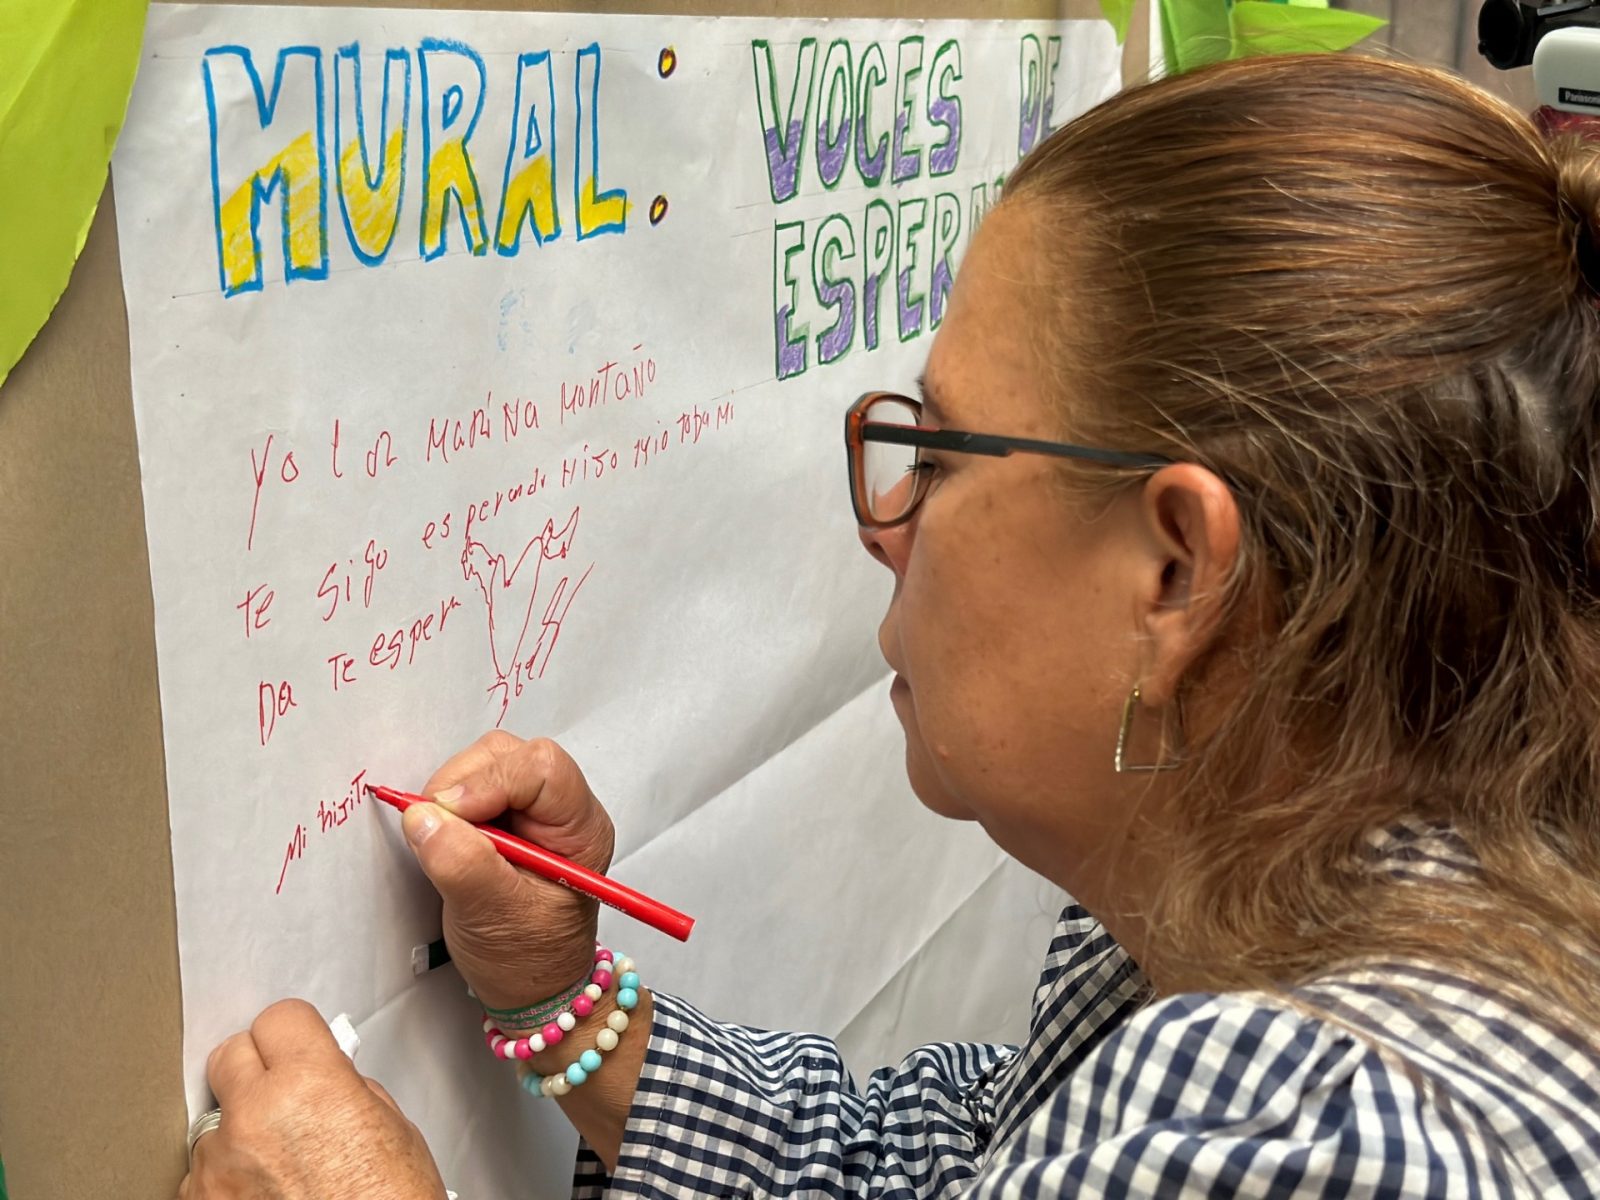 MURAL:
VOCES DE
ESPERA
Yo Luz MARiNA MONTAÑO
Te Sigo esperando Hijo Mio TODA Mi
Da Te espera
Mi hijiTo
Panasonic